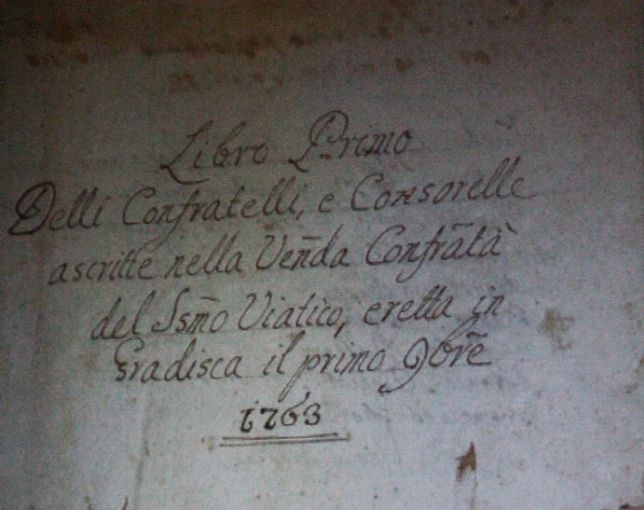 Libro Primo
Delli Confratelli, e Consorelle
ascritte nella Ven̄da Confrat̄a
del Ssm̄o Viatico, eretta in
Gradisca il primo 9br̄e
1763